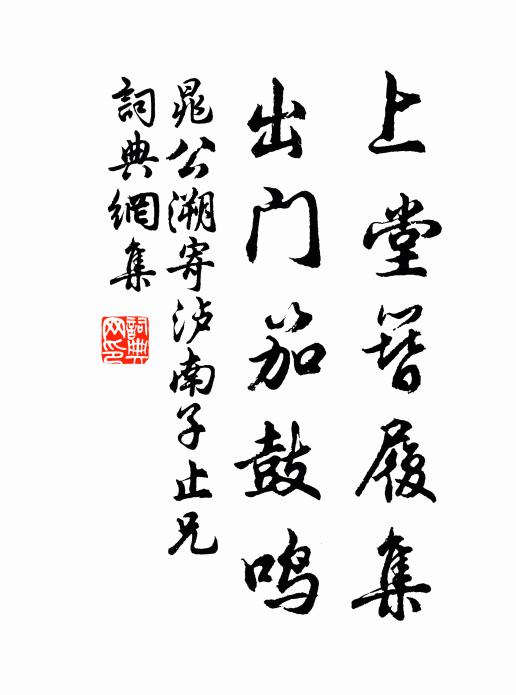 上堂簪履集
出门笳鼓鸣
晁公溯寄泸南子止兄
詞典網集
詞典
网印